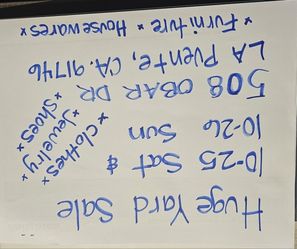 Huge Yard Sale
10-25 Sat &
10-26 Sun
508 OBAR DR
LA PUENTE, CA. 91746
* Furniture * Housewares *
* Clothes *
* Jewelry *
* Shoes *